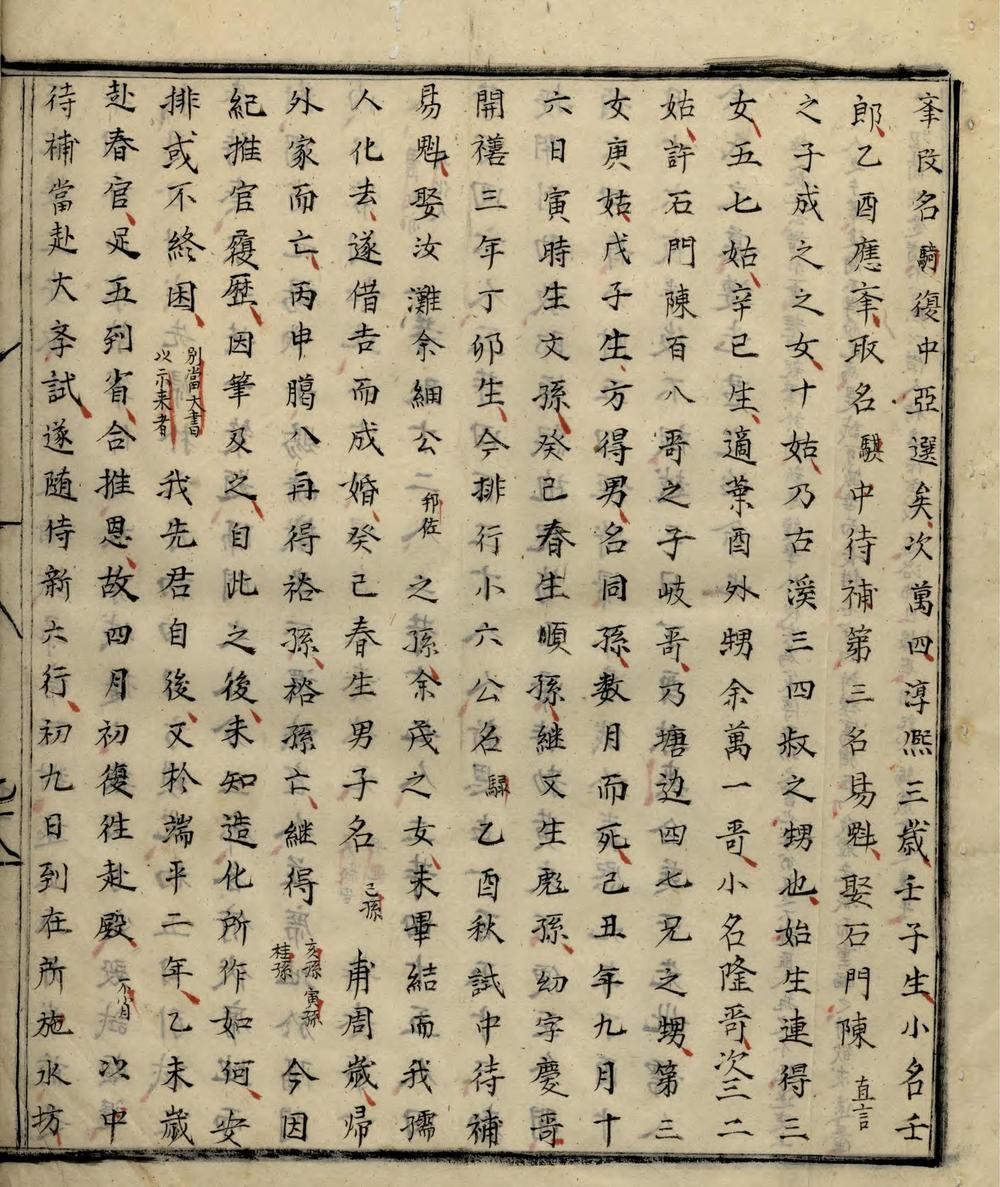 峯改名騊復中亞選矣次萬四淳熈三歲壬子生小名壬
郎乙酉應夆取名騏中待補第三名易魁娶石門陳直言
之子成之之女十姑乃古溪三四叔之甥也始生連得三
女五七姑辛巳生適葉酉外甥余萬一哥小名隆哥次三二
姑許石門陳百八哥之子岐哥乃塘边四七兄之甥第三
女庚姑戊子生方得男名同孫数月而死己丑年九月十
六日寅時生文孫癸巳春生順孫継又生彪孫幼字慶哥
開禧三年丁卯生今排行小六公名乙酉秋試中待補
易魁娶汝灘余細公二邦佐之孫余茂之女未畢結而我孺
人化去遂借吉而成婚癸巳春生男子名己孫甫周歲歸
外家而亡丙申臈八再得裕孫裕孫亡継得亥孫寅孫桂孫今因
紀推官履歴因筆及之自此之後未知造化所作如何安
排或不終困別當大書以示来者我先君自後又於端平二年乙未歲
赴春官足五到省合推恩故四月初復往赴殿不肖以中
待補當赴大夆試遂随侍新六行初九日到在所施水坊